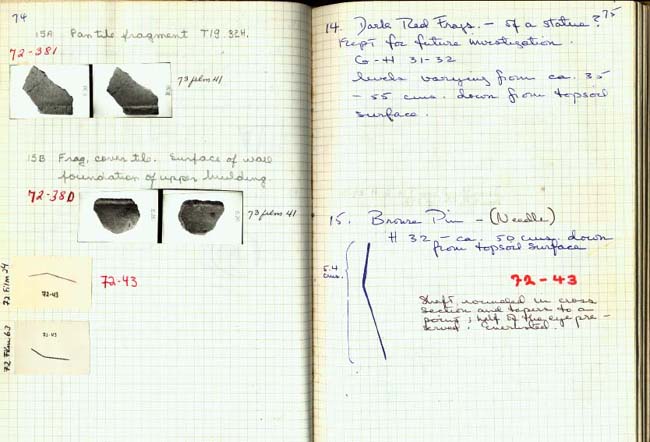 74
15A Pan tile fragment T19. 32H.
72-381
73 film 41
15B Frag. cover tile. Surface of wall
foundation of upper building.
72-38D
73 film 41
72 Film 24
72-43
72-43
72 Film 63
72-43
75
14. Dark Red Frags. - of a statue?
Kept for future investigation.
G-H 31-32
levels varying from ca. 35
- 55 cms. down from topsoil
surface.
15. Bronze Pin - (Needle)
H 32 - ca. 50 cms. down
from topsoil surface
5.4
cms.
72-43
Shaft, rounded in cross
section and tapers to a
point; half of the eye pre-
served. Encrusted.